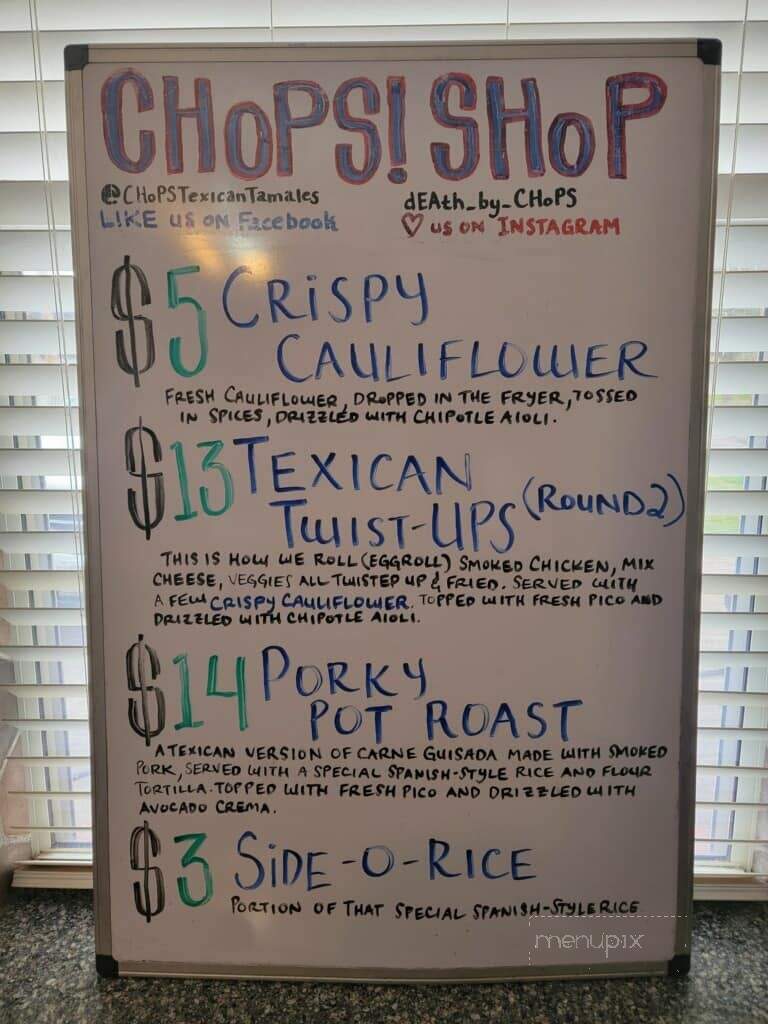 CHOPS! SHOP
@CHOPSTexicanTamales dEAth_by_CHOPS
LIKE US ON Facebook ♡ US ON INSTAGRAM
$5 CRISPY
CAULIFLOWER
FRESH CAULIFLOWER, DROPPED IN THE FRYER, TOSSED
IN SPICES, DRIZZLED WITH CHIPOTLE AIOLI.
$13 TEXICAN
TWIST-UPS (ROUND 2)
THIS IS HOW WE ROLL (EGGROLL) SMOKED CHICKEN, MIX
CHEESE, VEGGIES ALL TWISTED UP & FRIED. SERVED WITH
A FEW CRISPY CAULIFLOWER. TOPPED WITH FRESH PICO AND
DRIZZLED WITH CHIPOTLE AIOLI.
$14 PORKY
POT ROAST
A TEXICAN VERSION OF CARNE GUISADA MADE WITH SMOKED
PORK, SERVED WITH A SPECIAL SPANISH-STYLE RICE AND FLOUR
TORTILLA. TOPPED WITH FRESH PICO AND DRIZZLED WITH
AVOCADO CREMA.
$3 SIDE-O-RICE
PORTION OF THAT SPECIAL SPANISH-STYLE RICE
menupix